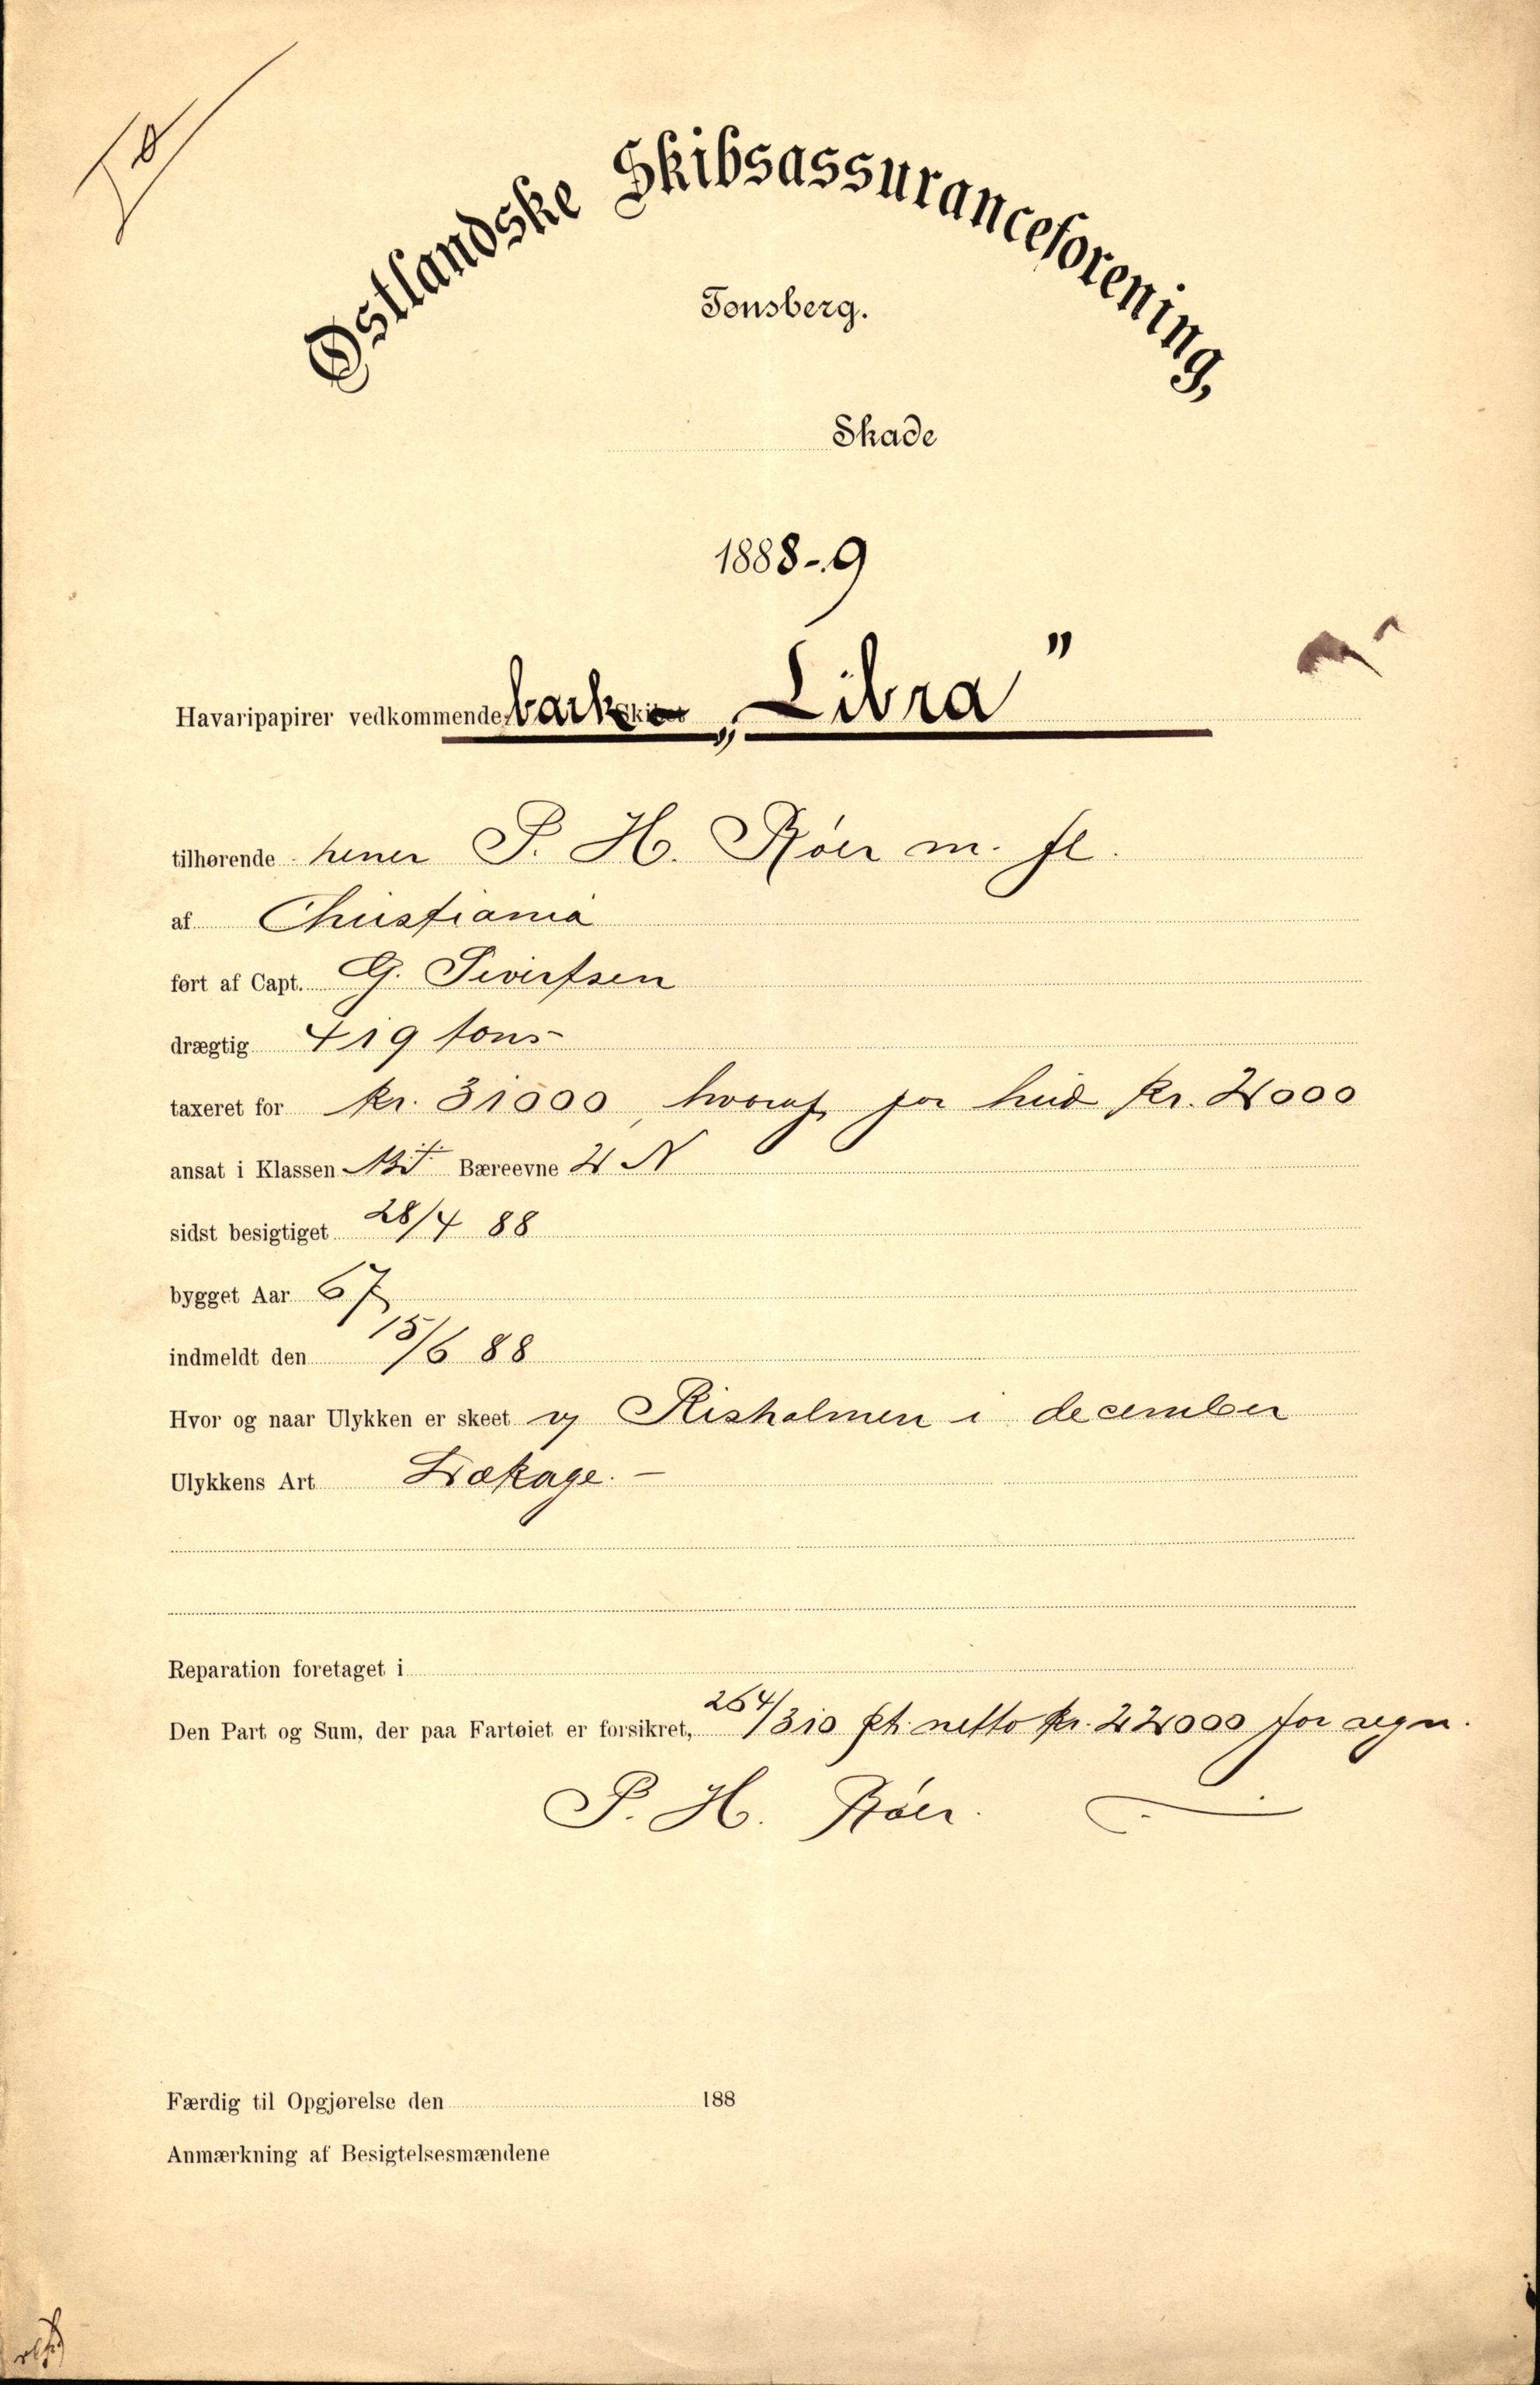 Østlandske Skibsassuranceforening,
Tønsberg.
Skade
1888-9
Havaripapirer vedkommende bark „Libra"
tilhørende herrer P. H. Røer m. fl.
af Christiania
ført af Capt. G. Sivertsen
drægtig 419 tons
taxeret for kr. 31000, hvoraf for hud kr. 2000
ansat i Klassen Bæreevne 2 N
sidst besigtiget 28/4 88
bygget Aar 67
indmeldt den 15/6 88
Hvor og naar Ulykken er skeet v/ Risholmen i december
Ulykkens Art Lækage. —
Reparation foretaget i
Den Part og Sum, der paa Fartøiet er forsikret, 264/310 pt. netto kr. 22000 for regn.
P. H. Røer.
Færdig til Opgjørelse den 188
Anmærkning af Besigtelsesmændene